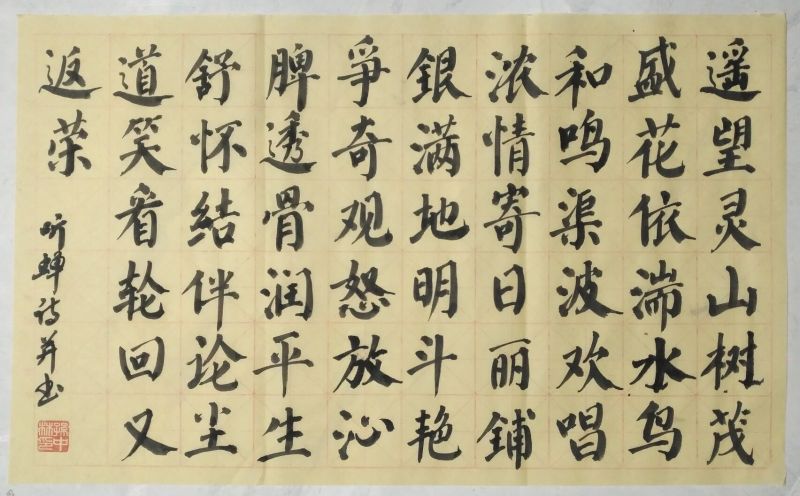 遥望灵山树茂
盛花依湍水鸟
和鸣渠波欢唱
浓情寄日丽铺
銀满地明斗艳
爭奇观怒放沁
脾透骨润平生
舒怀结伴论尘
道笑看轮回又
返荣
听蝉诗并书
孫中林印